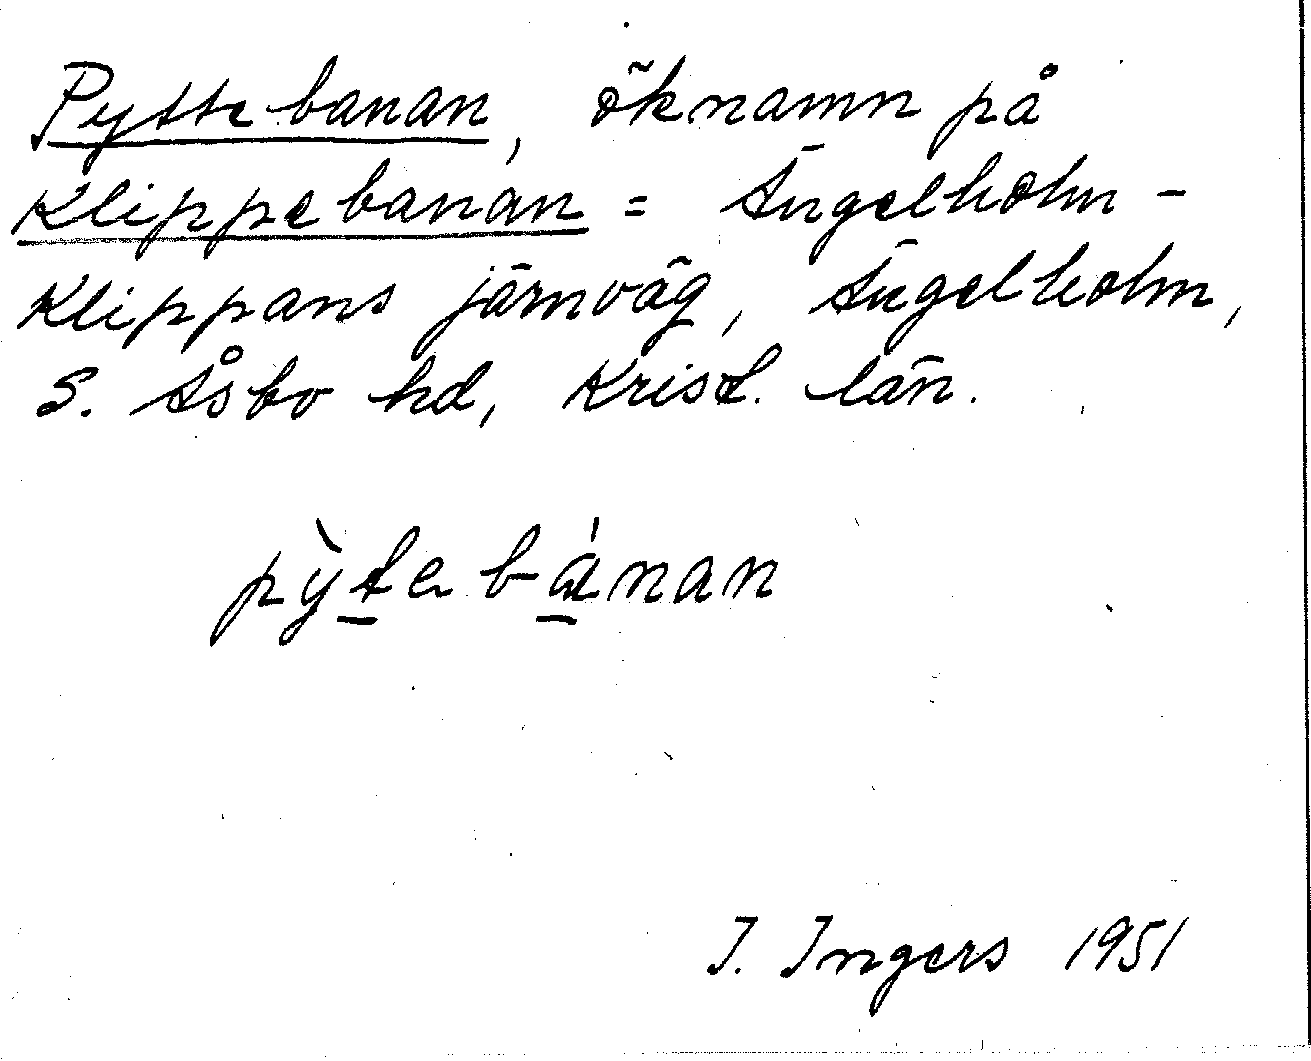 Pyttebanan, öknamn på
Klippebanan = Ängelholm -
Klippans järnväg, Ängelholm,
S. Åsbo hd, Krist. län.
pỳt̲e bá̲nan
I. Ingers 1951